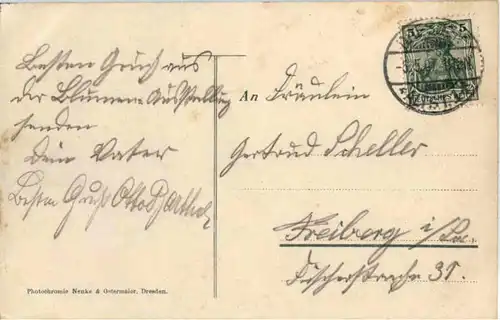 Besten Gruß aus
der Blumen-Ausstellung
senden
Dein Vater
Besten Gruß Otto
An Fräulein
Gertrud Scheller
Freiberg i/Sa.
Fischerstrasse 31.
Photochromie Nenke & Ostermaier, Dresden.